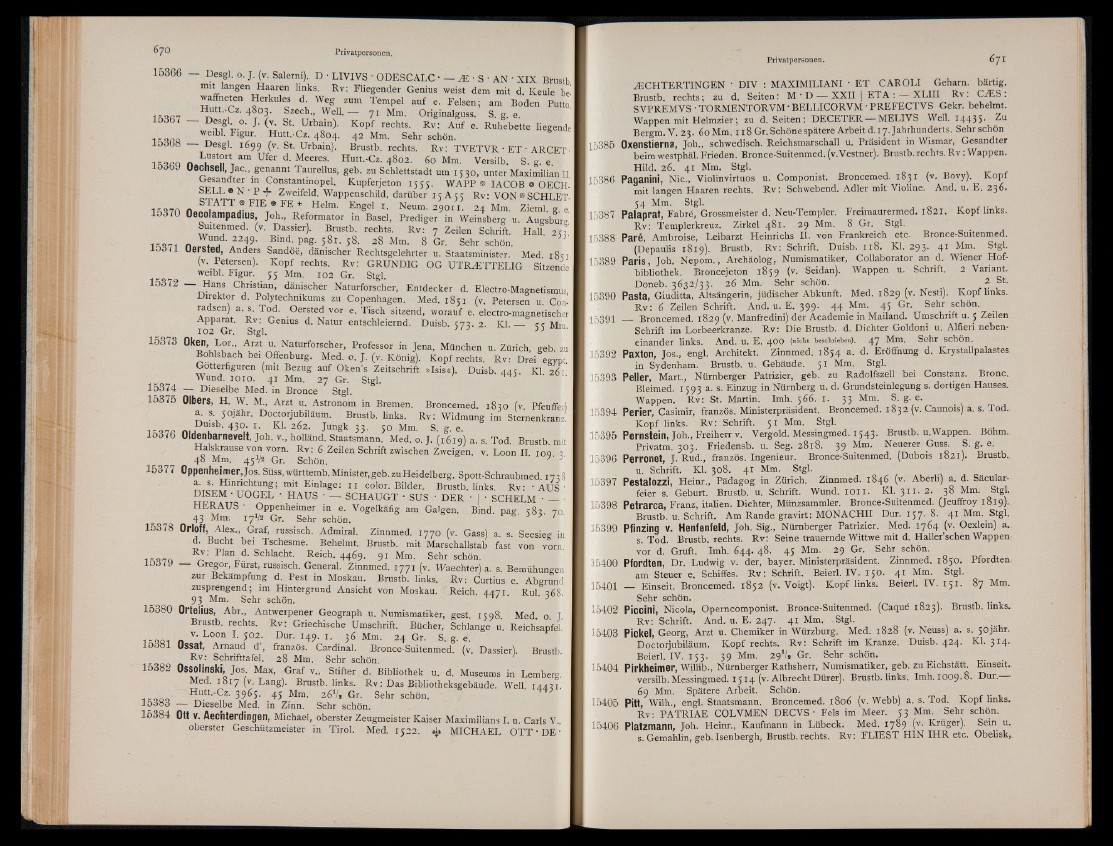 670 Privatpersonen.
15366 — Desgl. o. J. (v. Salerni). D · LIVIVS · ODESCALC · — Æ · S · AN · XIX Brustb.
mit langen Haaren links. Rv: Fliegender Genius weist dem mit d. Keule be-
waffneten Herkules d. Weg zum Tempel auf e. Felsen; am Boden Putto.
Hutt.-Cz. 4803. Szech., Well. — 71 Mm. Originalguss. S. g. e.
15367 — Desgl. o. J. (v. St. Urbain). Kopf rechts. Rv: Auf e. Ruhebette liegende
weibl. Figur. Hutt.-Cz. 4804. 42 Mm. Sehr schön.
15368 — Desgl. 1699 (v. St. Urbain). Brustb. rechts. Rv: TVETVR · ET · ARCET ·
Lustort am Ufer d. Meeres. Hutt.-Cz. 4802. 60 Mm. Versilb. S. g. e.
15369 Oechsell, Jac., genannt Taurellus, geb. zu Schlettstadt um 1530, unter Maximilian II.
Gesandter in Constantinopel. Kupferjeton 1555. WAPP ⊛ IACOB ⊛ OECH-
SELL ⊛ N · P ✣ Zweifeld. Wappenschild, darüber 15 A 55 Rv: VON ⊛ SCHLET-
STATT ⊛ FIE ⊛ FE + Helm. Engel 1. Neum. 29011. 24 Mm. Zieml. g. e.
15370 Oecolampadius, Joh., Reformator in Basel, Prediger in Weinsberg u. Augsburg.
Suitenmed. (v. Dassier). Brustb. rechts. Rv: 7 Zeilen Schrift. Hall. 253.
Wund. 2249. Bind. pag. 581. 58. 28 Mm. 8 Gr. Sehr schön.
15371 Oersted, Anders Sandöë, dänischer Rechtsgelehrter u. Staatsminister. Med. 1851
(v. Petersen). Kopf rechts. Rv: GRUNDIG OG UTRÆTTELIG Sitzende
weibl. Figur. 55 Mm. 102 Gr. Stgl.
15372 — Hans Christian, dänischer Naturforscher, Entdecker d. Electro-Magnetismus,
Direktor d. Polytechnikums zu Copenhagen. Med. 1851 (v. Petersen u. Con-
radsen) a. s. Tod. Oersted vor e. Tisch sitzend, worauf e. electro-magnetischer
Apparat. Rv: Genius d. Natur entschleiernd. Duisb. 573. 2. Kl. — 55 Mm.
102 Gr. Stgl.
15373 Oken, Lor., Arzt u. Naturforscher, Professor in Jena, München u. Zürich, geb. zu
Bohlsbach bei Offenburg. Med. o. J. (v. König). Kopf rechts. Rv: Drei egypt.
Götterfiguren (mit Bezug auf Oken's Zeitschrift »Isis«). Duisb. 445. Kl. 261.
Wund. 1010. 41 Mm. 27 Gr. Stgl.
15374 — Dieselbe Med. in Bronce Stgl.
15375 Olbers, H. W. M., Arzt u. Astronom in Bremen. Broncemed. 1830 (v. Pfeuffer)
a. s. 50jähr. Doctorjubiläum. Brustb. links. Rv: Widmung im Sternenkranz.
Duisb. 430. 1. Kl. 262. Jungk 33. 50 Mm. S. g. e.
15376 Oldenbarnevelt, Joh. v., holländ. Staatsmann. Med. o. J. (1619) a. s. Tod. Brustb. mit
Halskrause von vorn. Rv: 6 Zeilen Schrift zwischen Zweigen. v. Loon II. 109. 3.
48 Mm. 45¹/² Gr. Schön.
15377 Oppenheimer, Jos. Süss, württemb. Minister, geb. zu Heidelberg. Spott-Schraubmed. 1738
a. s. Hinrichtung; mit Einlage: 11 color. Bilder. Brustb. links. Rv: · AUS ·
DISEM · UOGEL · HAUS · — SCHAUGT · SUS · DER · | · SCHELM · — ·
HERAUS · Oppenheimer in e. Vogelkäfig am Galgen. Bind. pag. 583. 70.
43 Mm. 17¹/² Gr. Sehr schön.
15378 Orloff, Alex., Graf, russisch. Admiral. Zinnmed. 1770 (v. Gass) a. s. Seesieg in
d. Bucht bei Tschesme. Behelmt. Brustb. mit Marschallstab fast von vorn.
Rv: Plan d. Schlacht. Reich. 4469. 91 Mm. Sehr schön.
15379 — Gregor, Fürst, russisch. General. Zinnmed. 1771 (v. Waechter) a. s. Bemühungen
zur Bekämpfung d. Pest in Moskau. Brustb. links. Rv: Curtius e. Abgrund
zuspringend; im Hintergrund Ansicht von Moskau. Reich. 4471. Rul. 368.
93 Mm. Sehr schön.
15380 Ortelius, Abr., Antwerpener Geograph u. Numismatiker, gest. 1598. Med. o. J.
Brustb. rechts. Rv: Griechische Umschrift. Bücher, Schlange u. Reichsapfel.
v. Loon I. 502. Dur. 149. 1. 36 Mm. 24 Gr. S. g. e.
15381 Ossat, Arnaud d', französ. Cardinal. Bronce-Suitenmed. (v. Dassier). Brustb.
Rv: Schrifttafel. 28 Mm. Sehr schön.
15382 Ossolinski, Jos. Max. Graf v., Stifter d. Bibliothek u. d. Museums in Lemberg.
Med. 1817 (v. Lang). Brustb. links. Rv: Das Bibliotheksgebäude. Well. 14431.
Hutt.-Cz. 3965. 45 Mm. 26¹/₂ Gr. Sehr schön.
15383 — Dieselbe Med. in Zinn. Sehr schön.
15384 Ott v. Aechterdingen, Michael, oberster Zeugmeister Kaiser Maximilians I. u. Carls V.,
oberster Geschützmeister in Tirol. Med. 1522. ✤ MICHAEL OTT · DE ·
Privatpersonen. 671
ÆCHTERTINGEN · DIV : MAXIMILIANI · ET CAROLI Geharn. bärtig.
Brustb. rechts; zu d. Seiten: M · D — XXII | ETA : — XLIII Rv: CÆS :
SVPREMVS · TORMENTORVM · BELLICORVM · PREFECTVS Gekr. behelmt.
Wappen mit Helmzier; zu d. Seiten: DECETER — MELIVS Well. 14435. Zu
Bergm. V. 23. 60 Mm. 118 Gr. Schöne spätere Arbeit d. 17. Jahrhunderts. Sehr schön
15385 Oxenstierna, Joh., schwedisch. Reichsmarschall u. Präsident in Wismar, Gesandter
beim westphäl. Frieden. Bronce-Suitenmed. (v. Vestner). Brustb. rechts. Rv: Wappen.
Hild. 26. 41 Mm. Stgl.
15386 Paganini, Nic., Violinvirtuos u. Componist. Broncemed. 1831 (v. Bovy). Kopf
mit langen Haaren rechts. Rv: Schwebend. Adler mit Violine. And. u. E. 236.
54 Mm. Stgl.
15387 Palaprat, Fabré, Grossmeister d. Neu-Templer. Freimaurermed. 1821. Kopf links.
Rv: Templerkreuz. Zirkel 481. 29 Mm. 8 Gr. Stgl.
15388 Paré, Ambroise, Leibarzt Heinrichs II. von Frankreich etc. Bronce-Suitenmed.
(Depaulis 1819). Brustb. Rv: Schrift. Duisb. 118. Kl. 293. 41 Mm. Stgl.
15389 Paris, Joh. Nepom., Archäolog, Numismatiker, Collaborator an d. Wiener Hof-
bibliothek. Broncejeton 1859 (v. Seidan). Wappen u. Schrift. 2 Variant.
Doneb. 3632/33. 26 Mm. Sehr schön. 2 St.
15390 Pasta, Giuditta, Altsängerin, jüdischer Abkunft. Med. 1829 (v. Nesti). Kopf links.
Rv: 6 Zeilen Schrift. And. u. E. 399. 44 Mm. 45 Gr. Sehr schön.
15391 — Broncemed. 1829 (v. Manfredini) der Academie in Mailand. Umschrift u. 5 Zeilen
Schrift im Lorbeerkranze. Rv: Die Brustb. d. Dichter Goldoni u. Alfieri neben-
einander links. And. u. E. 400 (nicht beschrieben). 47 Mm. Sehr schön.
15392 Paxton, Jos., engl. Architekt. Zinnmed. 1854 a. d. Eröffnung d. Krystallpalastes
in Sydenham. Brustb. u. Gebäude. 51 Mm. Stgl.
15393 Peller, Mart., Nürnberger Patrizier, geb. zu Radolfszell bei Constanz. Bronc.
Bleimed. 1593 a. s. Einzug in Nürnberg u. d. Grundsteinlegung s. dortigen Hauses.
Wappen. Rv: St. Martin. Imh. 566. 1. 33 Mm. S. g. e.
15394 Perier, Casimir, französ. Ministerpräsident. Broncemed. 1832 (v. Caunois) a. s. Tod.
Kopf links. Rv: Schrift. 51 Mm. Stgl.
15395 Pernstein, Joh., Freiherr v. Vergold. Messingmed. 1543. Brustb. u. Wappen. Böhm.
Privatm. 303. Friedensb. u. Seg. 2818. 39 Mm. Neuerer Guss. S. g. e.
15396 Perronet, J. Rud., französ. Ingenieur. Bronce-Suitenmed. (Dubois 1821). Brustb.
u. Schrift. Kl. 308. 41 Mm. Stgl.
15397 Pestalozzi, Heinr., Pädagog in Zürich. Zinnmed. 1846 (v. Aberli) a. d. Säcular-
feier s. Geburt. Brustb. u. Schrift. Wund. 1011. Kl. 311. 2. 38 Mm. Stgl.
15398 Petrarca, Franz, italien. Dichter, Münzsammler. Bronce-Suitenmed. (Jeuffroy 1819).
Brustb. u. Schrift. Am Rande gravirt: MONACHII Dur. 157. 8. 41 Mm. Stgl.
15399 Pfinzing v. Henfenfeld, Joh. Sig., Nürnberger Patrizier. Med. 1764 (v. Oexlein) a.
s. Tod. Brustb. rechts. Rv: Seine trauernde Wittwe mit d. Haller'schen Wappen
vor d. Gruft. Imh. 644. 48. 45 Mm. 29 Gr. Sehr schön.
15400 Pfordten, Dr. Ludwig v. der, bayer. Ministerpräsident. Zinnmed. 1850. Pfordten
am Steuer e. Schiffes. Rv: Schrift. Beierl. IV. 150. 41 Mm. Stgl.
15401 — Einseit. Broncemed. 1852 (v. Voigt). Kopf links. Beierl. IV. 151. 87 Mm.
Sehr schön.
15402 Piccini, Nicola, Operncomponist. Bronce-Suitenmed. (Caqué 1823). Brustb. links.
Rv: Schrift. And. u. E. 247. 41 Mm. Stgl.
15403 Pickel, Georg, Arzt u. Chemiker in Würzburg. Med. 1828 (v. Neuss) a. s. 50jähr.
Doctorjubiläum. Kopf rechts. Rv: Schrift im Kranze. Duisb. 424. Kl. 314.
Beierl. IV. 153. 39 Mm. 29¹/₂ Gr. Sehr schön.
15404 Pirkheimer, Wilib., Nürnberger Rathsherr, Numismatiker, geb. zu Eichstätt. Einseit.
versilb. Messingmed. 1514 (v. Albrecht Dürer). Brustb. links. Imh. 1009. 8. Dur. —
69 Mm. Spätere Arbeit. Schön.
15405 Pitt, Wilh., engl. Staatsmann. Broncemed. 1806 (v. Webb) a. s. Tod. Kopf links.
Rv: PATRIAE COLVMEN DECVS · Fels im Meer. 53 Mm. Sehr schön.
15406 Platzmann, Joh. Heinr., Kaufmann in Lübeck. Med. 1789 (v. Krüger). Sein u.
s. Gemahlin, geb. Isenbergh, Brustb. rechts. Rv: FLIEST HIN IHR etc. Obelisk,